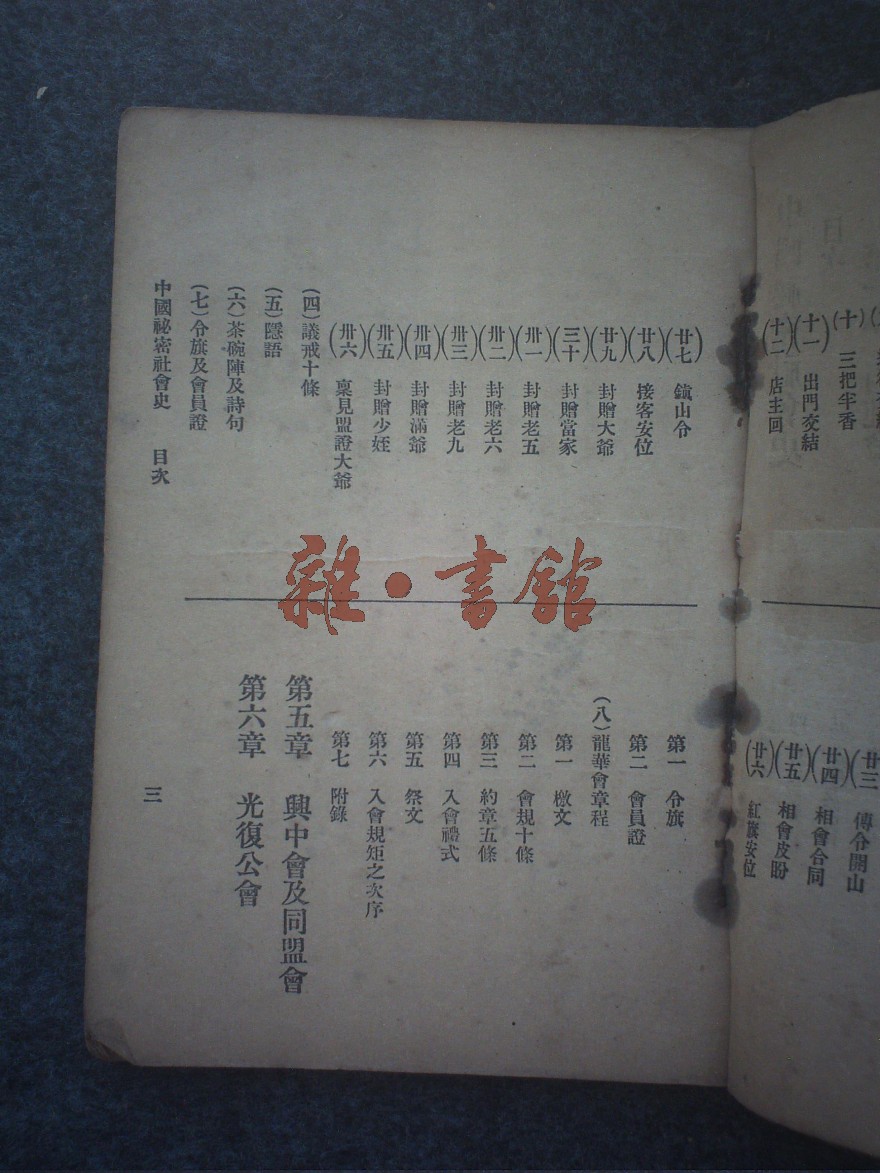 (十)　三把半香
(十一)　出門交結
(十二)　店主回
廿三　傳令開山
(廿四)　相會合同
(廿五)　相會皮盼
(廿六)　紅旗安位
(廿七)　鎮山令
(廿八)　接客安位
(廿九)　封贈大爺
(三十)　封贈當家
(卅一)　封贈老五
(卅二)　封贈老六
(卅三)　封贈老九
(卅四)　封贈滿爺
(卅五)　封贈少姪
(卅六)　稟見盟證大爺
(四)議戒十條
(五)隱語
(六)茶碗陣及詩句
(七)令旗及會員證
第一　令旗
第二　會員證
(八)龍華會章程
第一　檄文
第二　會規十條
第三　約章五條
第四　入會禮式
第五　祭文
第六　入會規矩之次序
第七　附錄
第五章　興中會及同盟會
第六章　光復公會
中國祕密社會史　目次
三
雜·書館